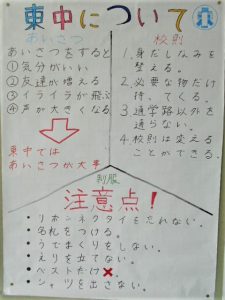 東中について
あいさつ
あいさつをすると
①気分がいい
②友達が増える
③イライラが飛ぶ
④声が大きくなる
東中では
あいさつが大事
校則
1.身だしなみを
整える。
2.必要な物だけ
持ってくる。
3.通学路以外を
通らない。
4.校則は変える
ことができる。
制服
注意点!
・リボン・ネクタイを忘れない。
・名札をつける。
・うでまくりをしない。
・えりを立てない。
・ベストだけ×。
・シャツを出さない。